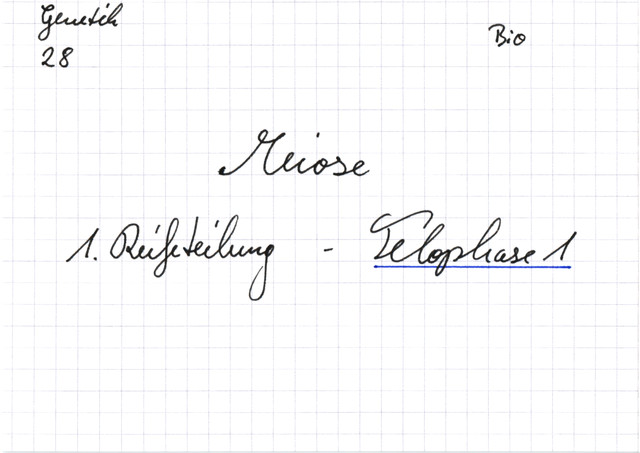 Genetik
Bio
28
Meiose
1. Reifeteilung - Telophase 1